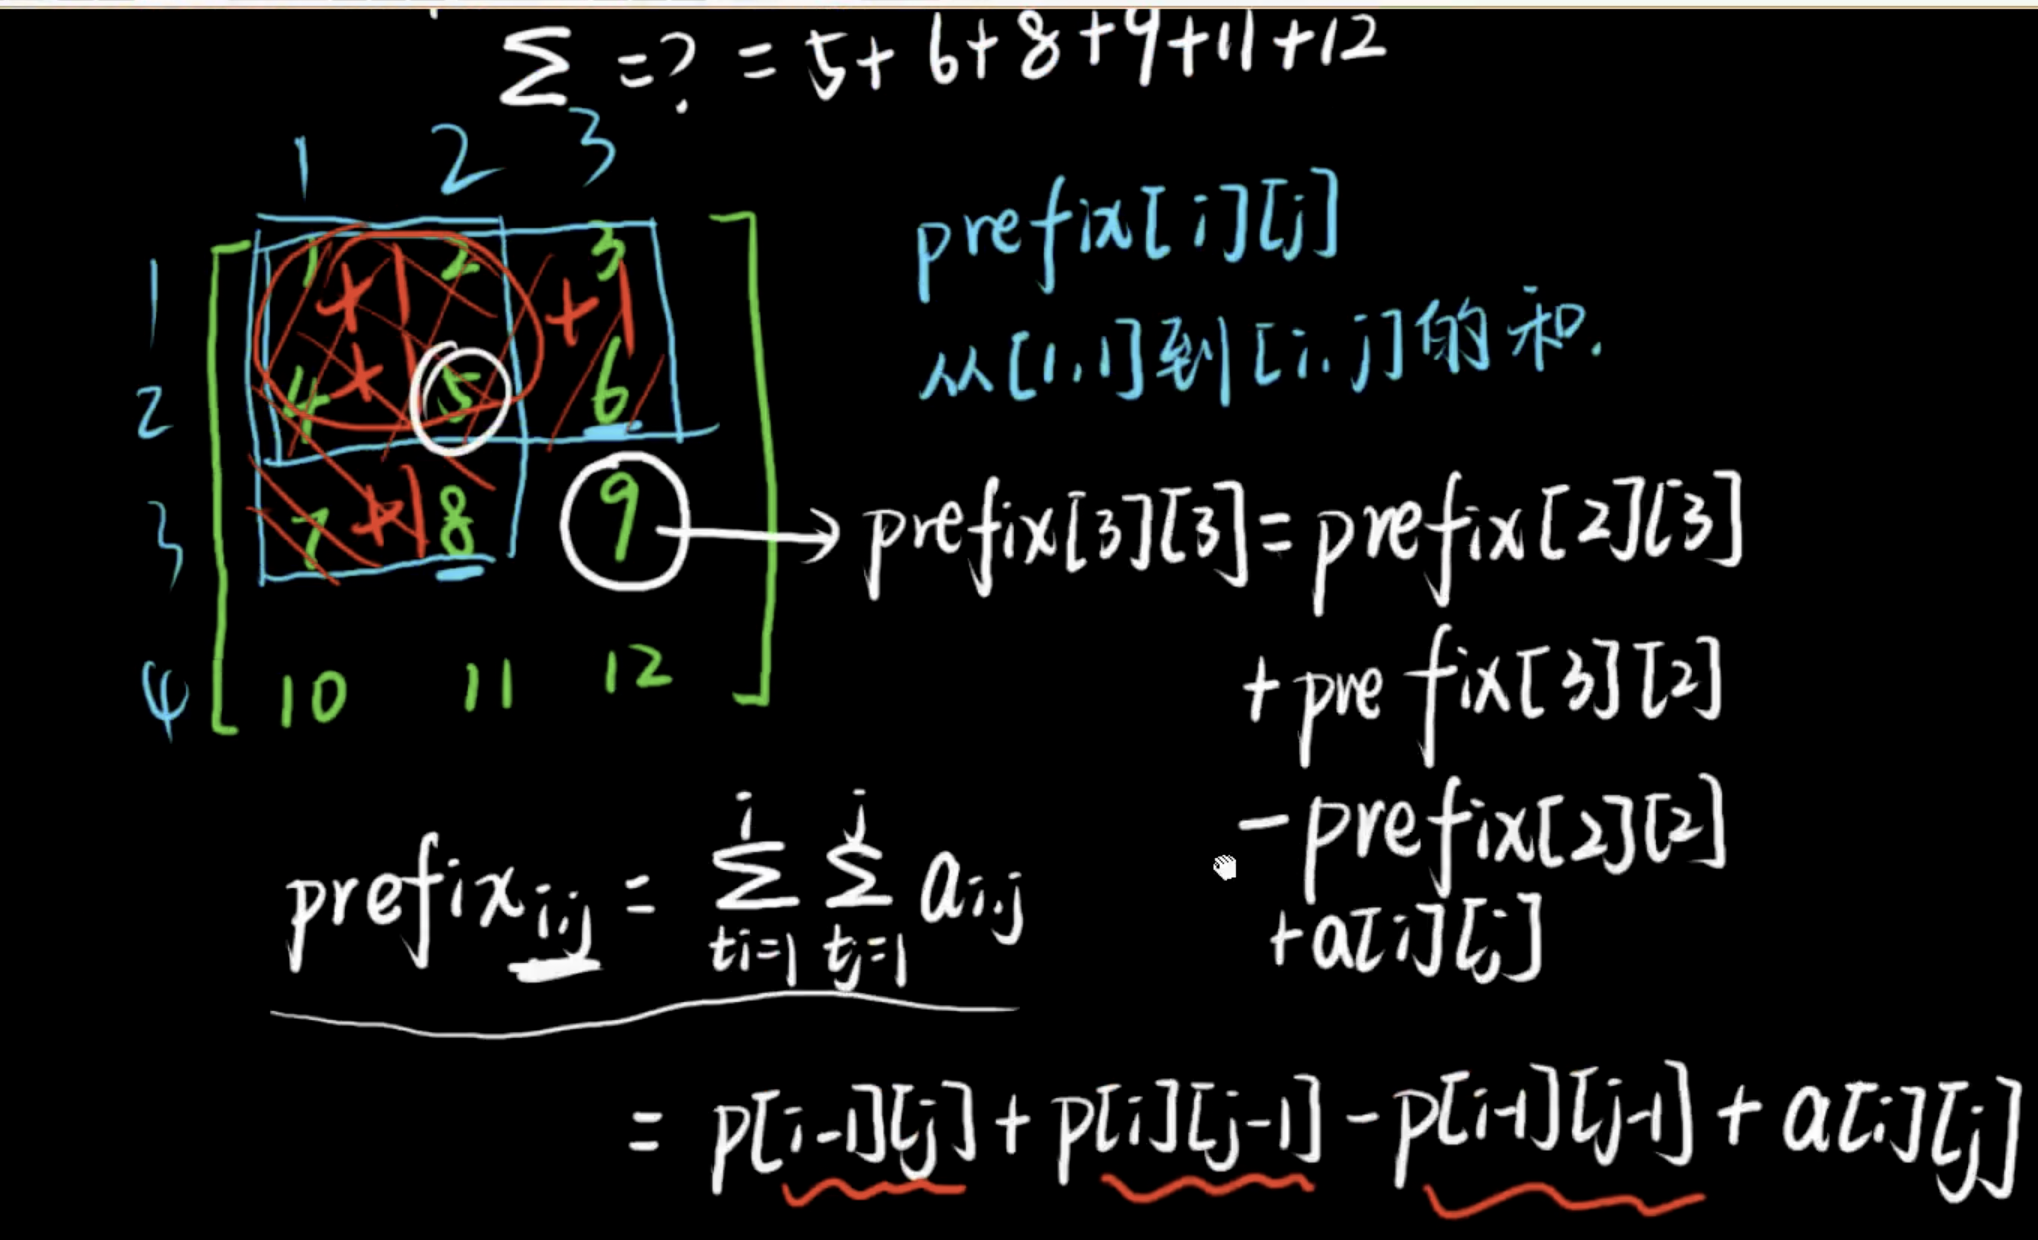 ∑ =? = 5+6+8+9+11+12
1 2 3
1 1 +1 2 +1 3
2 4 + 5 6
3 7 +1 8 9
4 10 11 12
prefix[i][j]
从[1,1]到[i,j]的和.
prefix[3][3]=prefix[2][3]
+prefix[3][2]
-prefix[2][2]
+a[i][j]
prefix i,j = ∑ti=1^i ∑tj=1^j a i,j
= p[i-1][j]+p[i][j-1]-p[i-1][j-1]+a[i][j]